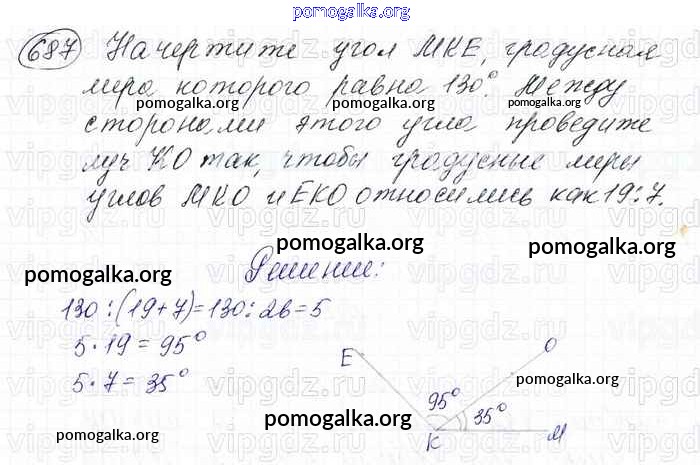 pomogalka.org
687 Начертите угол МКЕ, градусная
мера которого равна 130°. Между
pomogalka.org pomogalka.org pomogalka.org
сторонами этого угла проведите
луч КО так, чтобы градусные меры
углов МКО и ЕКО относились как 19:7.
pomogalka.org
pomogalka.org
Решение:
pomogalka.org
130:(19+7)=130:26=5
5·19=95°
5·7=35°
E
O
pomogalka.org
95°
35°
pomogalka.org
K
M
pomogalka.org
pomogalka.org
vipgdz.ru vipgdz.ru vipgdz.ru vipgdz.ru